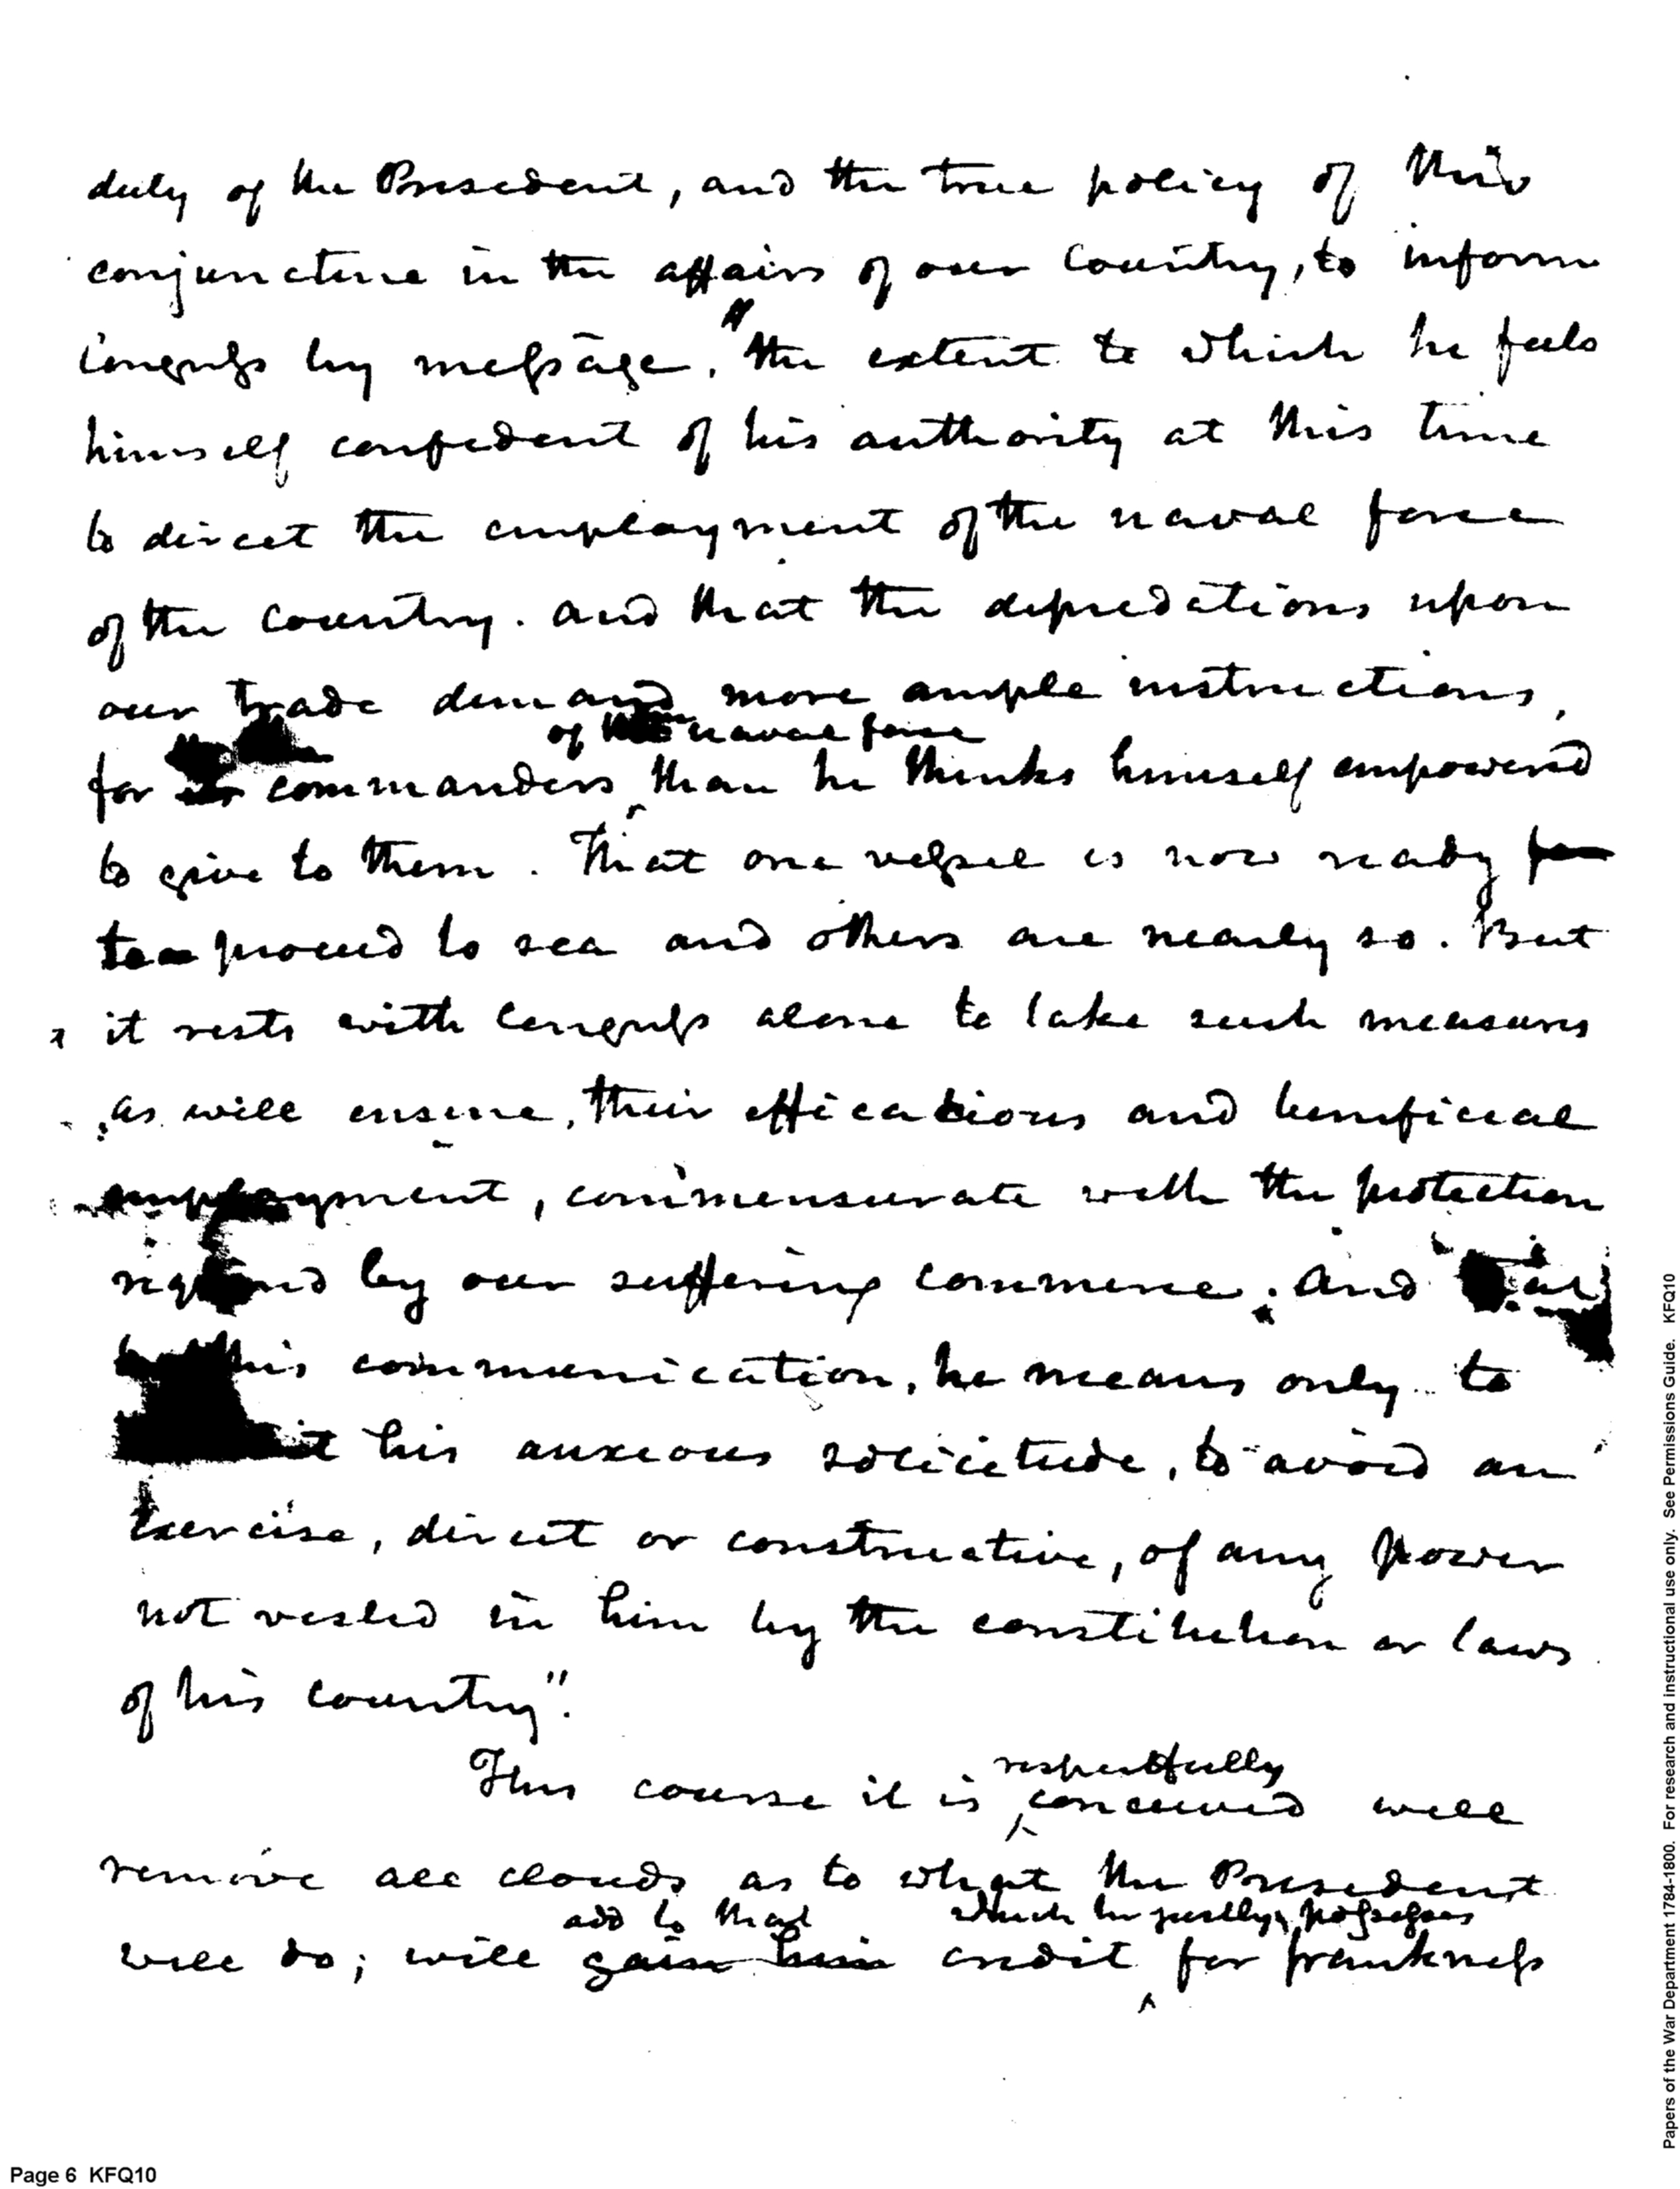 duty of the President, and the true policy of this
conjuncture in the affairs of our country, to inform
Congress by message, "the extent to which he feels
himself confident of his authority at this time
to direct the employment of the naval force
of the country. and that the depredations upon
our trade demand more ample instructions,
of the naval force
for commanders, than he thinks himself empowered
to give to them. That one vessel is now ready for
to proceed to sea and others are nearly so. But
it rests with Congress alone to take such measures
as will ensure, their efficacious and beneficial
employment, commensurate with the protection
required by our suffering commerce; and
this communication, he means only to
his anxious solicitude, to avoid an
exercise, direct or constructive, of any power
not vested in him by the constitution or laws
of his country".
respectfully
This course it is conceived will
remove all clouds as to what the President
add to that which he justly possesses
will do; will gain him credit for frankness
Page 6 KFQ10
Papers of the War Department 1784-1800. For research and instructional use only. See Permissions Guide. KFQ10